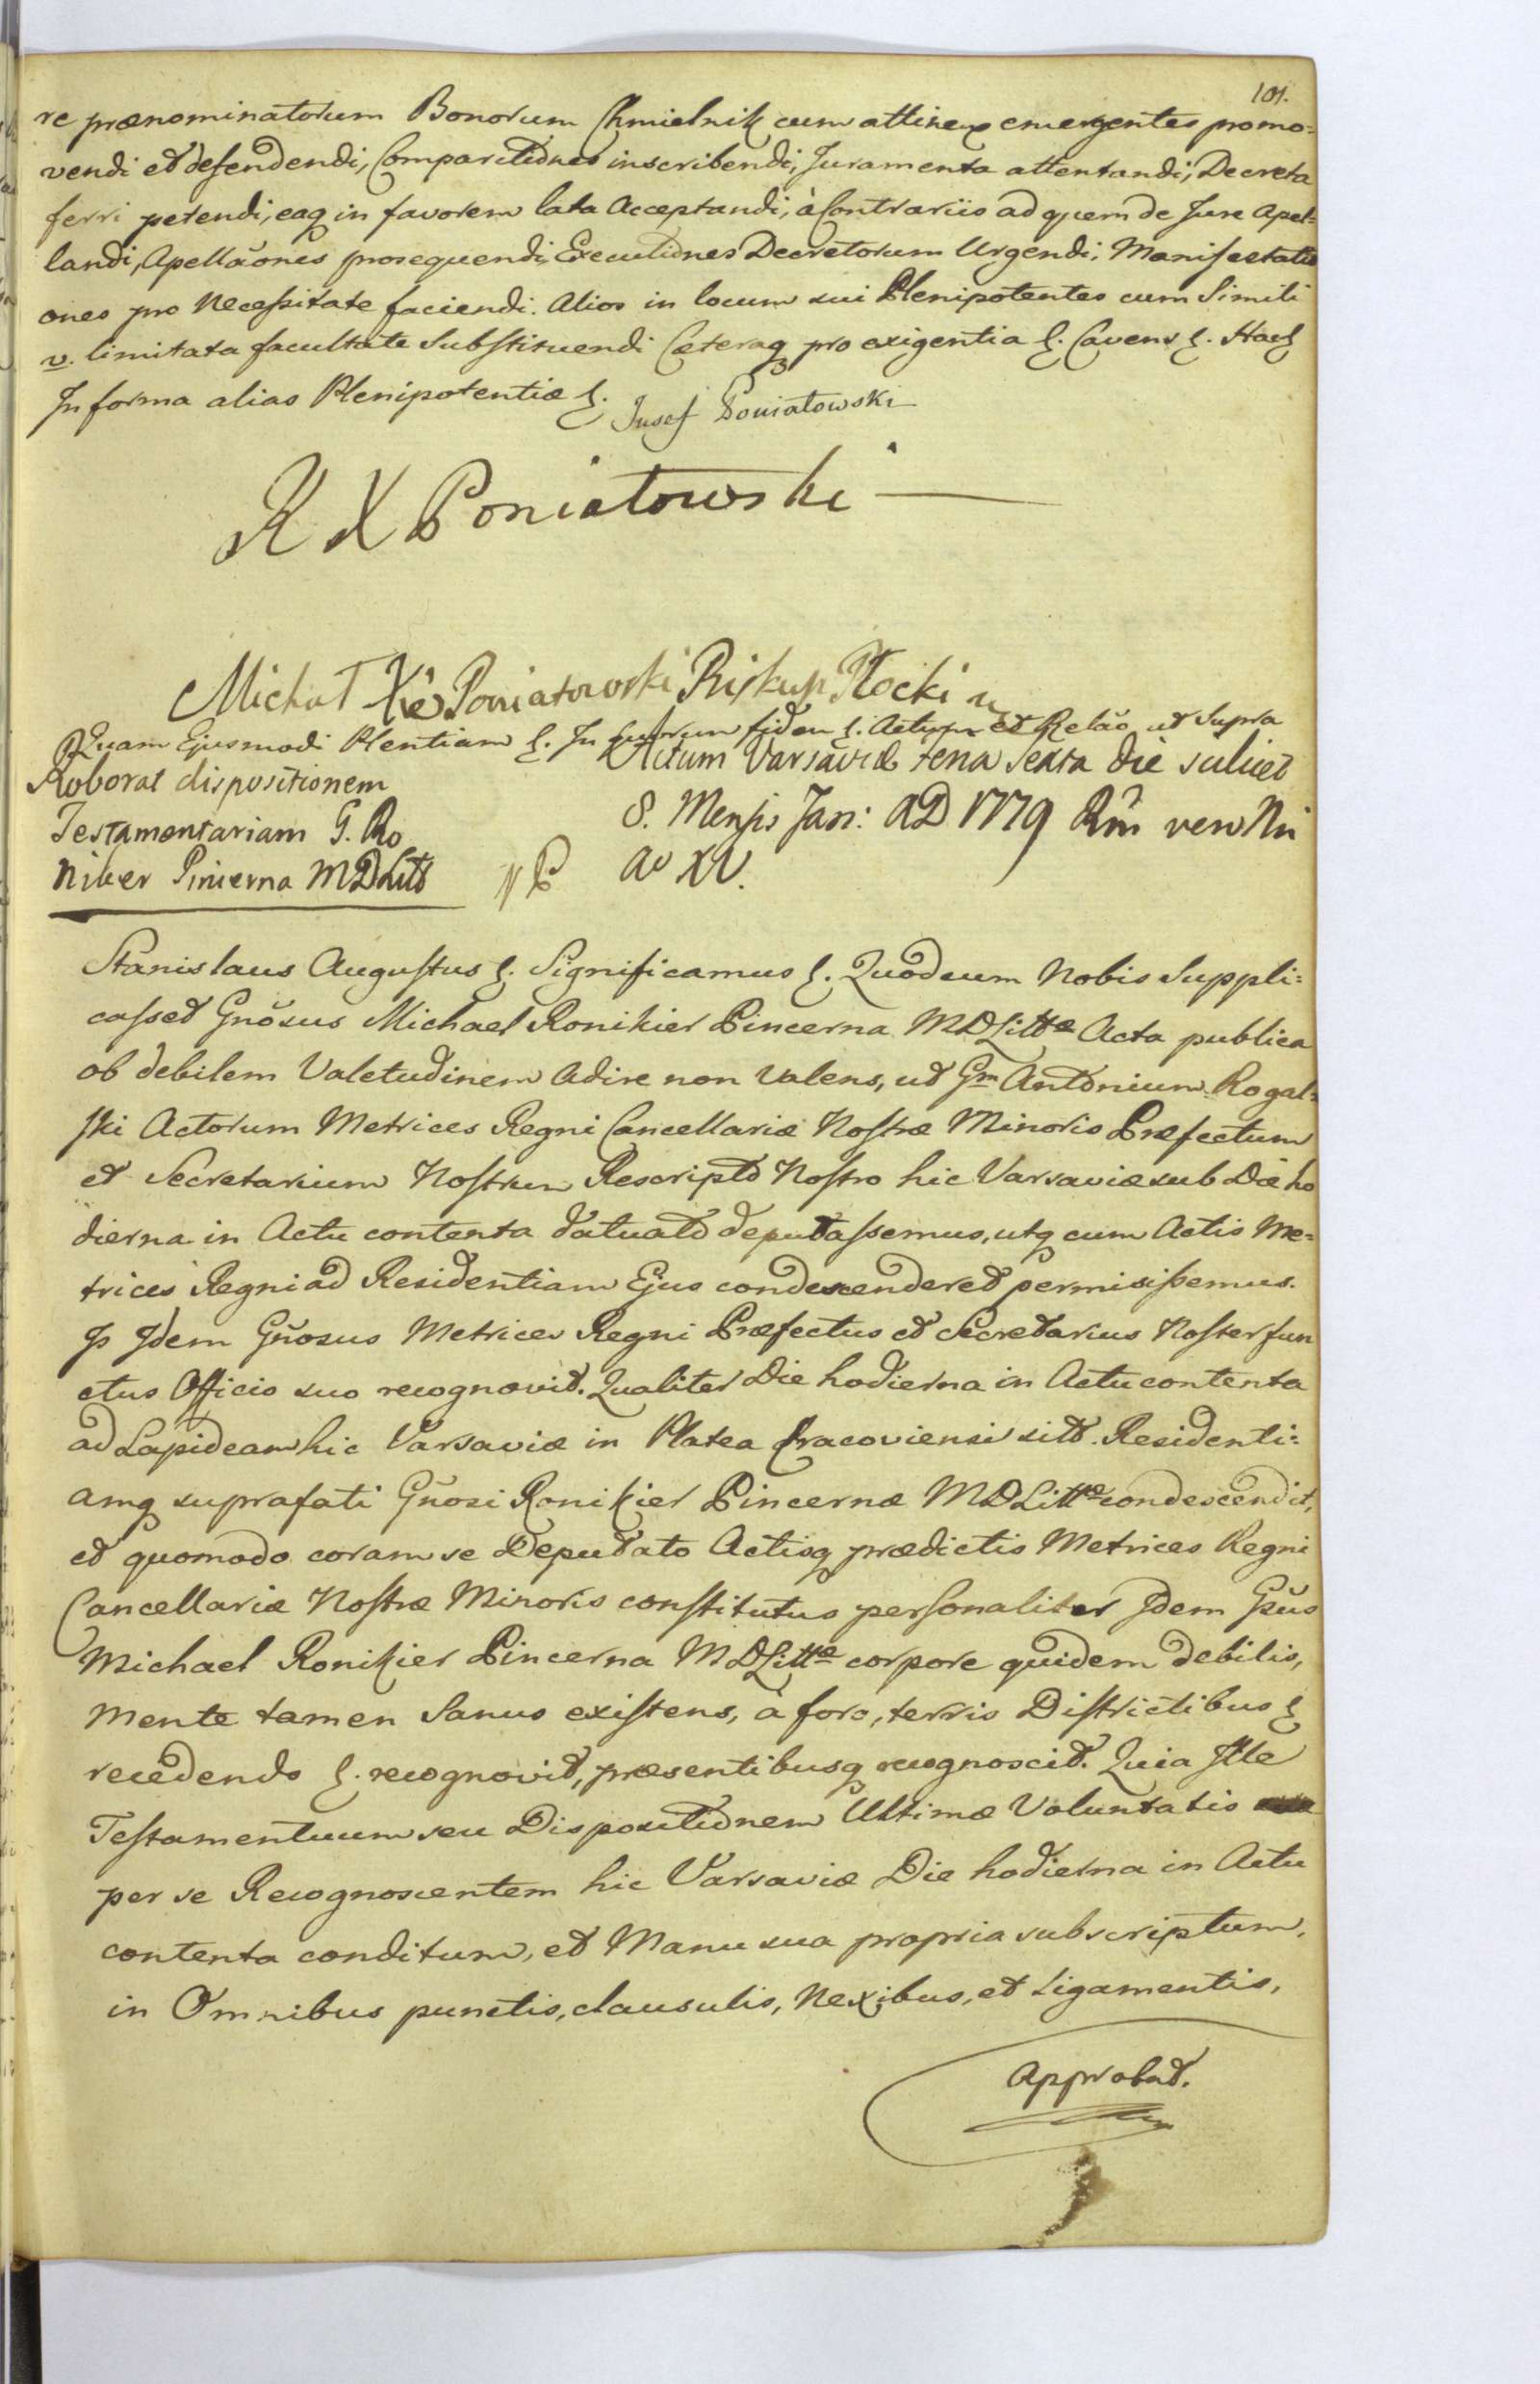 101.
re prænominatorum Bonorum Chmielnik cum attinen emergentes promo=
vendi et defendendi, Comparitiones inscribendi, Juramenta attentandi, Decreta
ferri petendi, eaq in favorem lata Acceptandi, à Contrariis ad quem de Jure Apel=
landi, Apellaõnes prosequendi, Executiones Decretorum Urgendi, Manifestati
ones pro Necessitate faciendi. Alios in locum sui Plenipotentes cum Simili
v. limitata facultate Substituendi Cæteraq pro exigentia &. Cavens &. Haec
In forma alias Plenipotentiæ &.
Jusef Poniatowski
K X Poniatowski
Michał Xże Poniatowski Biskup Płocki
Quam Ejusmodi Plentiam &. In quorum fidem &. Actum et Relão ut Supra
Roborat dispositionem
Testamentariam G. Ro
niker Pincerna MDLitt
Actum Varsaviæ feria Sexta die scilicet
8. Mensis Jan: AD 1779 Rñi vero Nri
Ao XV.
Stanislaus Augustus &. Significamus &. Quod cum Nobis Suppli=
casset Gnõsus Michael Ronikier Pincerna MDLittæ Acta publica
ob debilem Valetudinem Adire non Valens, ut Gm Antonium Rogal=
ski Actorum Metrices Regni Cancellariæ Nostræ Minoris Præfectum
et Secretarium Nostrum Rescripto Nostro hic Varsaviæ sub Die ho
dierna in Actu contenta datuato deputassemus, utq cum Actis Me=
trices Regni ad Residentiam Ejus condescenderet permisissemus.
Is Idem Gñosus Metrices Regni Præfectus et Secretarius Noster fun
ctus Officio suo recognovit. Qualiter Die hodierna in Actu contenta
ad Lapideam hic Varsaviæ in Platea Cracoviensi sitt. Residenti=
amq suprafati Gñosi Ronikier Pincernæ MDLittæ condescendit,
et quomodo coram se Deputato Actisq prædictis Metrices Regni
Cancellariæ Nostræ Minoris constitutus personaliter Idem Gsus
Michael Ronikier Pincerna MDLittæ corpore quidem debilis,
mente tamen Sanus existens, à foro, terris Districtibus &
recedendo &. recognovit, præsentibusq recognoscit. Quia Ille
Testamentuum seu Dispositionem Ultimæ Voluntatis
per se Recognoscentem hic Varsaviæ Die hodierna in Actu
contenta conditum, et Manu sua propria subscriptum,
in Omnibus punctis, clausulis, Nexibus, et Ligamentis,
Approbat.